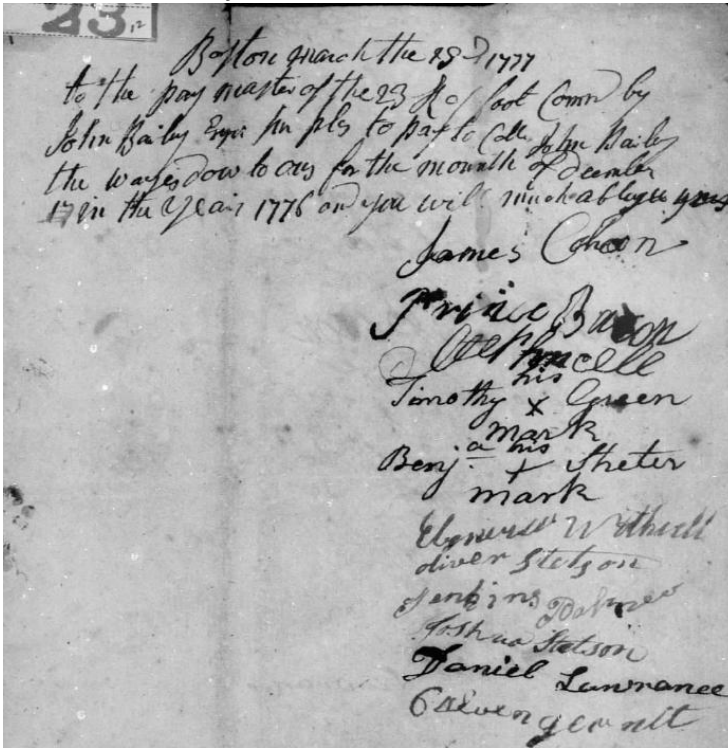 23,12
Boston march the 1777
to the pay master of the 23 R of foot Comn by
John Bailey Esqr Sir pls to pay to Coll John Bailey
the wages dow to ous for the mounth of decmber
in the Year 1776 and you will much ablige yours
James Cohoon
Prince Bacon
his
Timothy x Green
mark
a his
Benj. + Sheter
mark
Ebenezer Witherell
oliver Stetson
Jenkins
Joshua Stetson
Daniel Lawrance